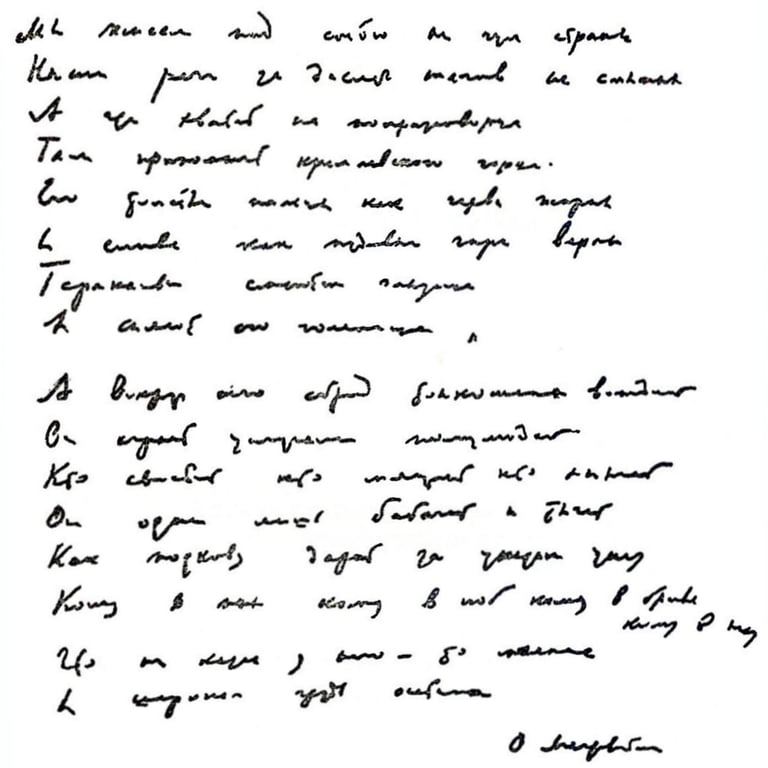 Мы живем под собою не чуя страны
Наши речи за десять шагов не слышны
А где хватит на полразговорца
Там припомнят кремлевского горца.
Его толстые пальцы как черви жирны
И слова как пудовые гири верны
Тараканьи смеются глазища
И сияют его голенища

А вокруг его сброд тонкошеих вождей
Он играет услугами полулюдей
Кто свистит кто мяучит кто хнычет
Он один лишь бабачит и тычет
Как подкову дарит за указом указ
Кому в пах кому в лоб кому в бровь
кому в глаз
Что ни казнь у него - то малина
И широкая грудь осетина
О Мандельштам